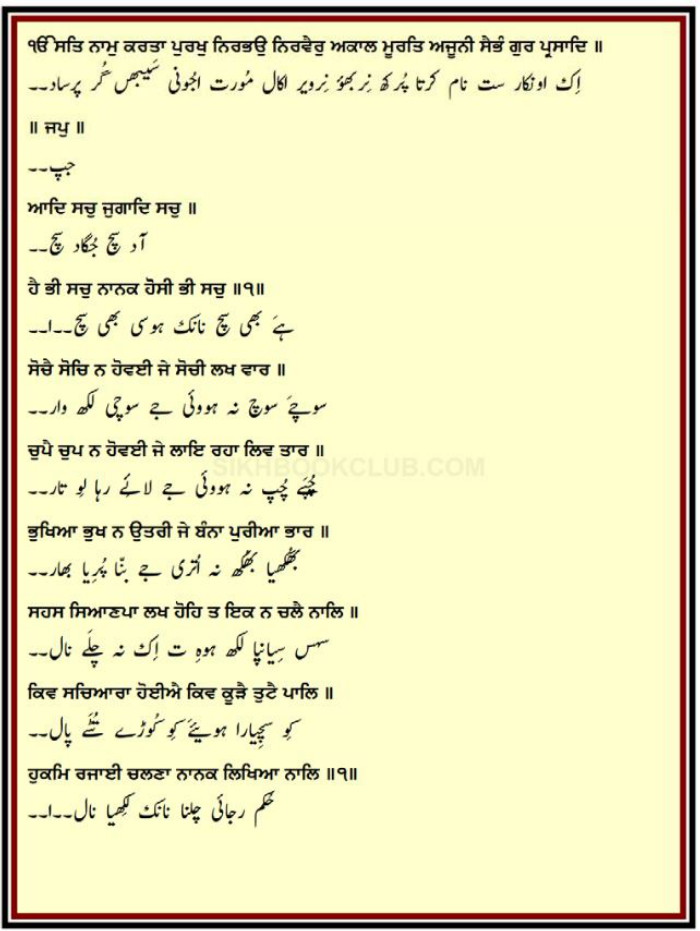 ੴ ਸਤਿ ਨਾਮੁ ਕਰਤਾ ਪੁਰਖੁ ਨਿਰਭਉ ਨਿਰਵੈਰੁ ਅਕਾਲ ਮੂਰਤਿ ਅਜੂਨੀ ਸੈਭੰ ਗੁਰ ਪ੍ਰਸਾਦਿ ॥
اِک اونکار ست نام کرتا پُرکھ نِربھؤ نِرویر اکال مُورت اجُونی سَیبھں گُر پرساد۔۔
॥ ਜਪੁ ॥
جپ۔۔
ਆਦਿ ਸਚੁ ਜੁਗਾਦਿ ਸਚੁ ॥
آد سچ جُگاد سچ۔۔
ਹੈ ਭੀ ਸਚੁ ਨਾਨਕ ਹੋਸੀ ਭੀ ਸਚੁ ॥੧॥
ہےَ بھی سچ نانک ہوسی بھی سچ۔۔ا۔۔
ਸੋਚੈ ਸੋਚਿ ਨ ਹੋਵਈ ਜੇ ਸੋਚੀ ਲਖ ਵਾਰ ॥
سوچےَ سوچ نہ ہووئی جے سوچی لکھ وار۔۔
ਚੁਪੈ ਚੁਪ ਨ ਹੋਵਈ ਜੇ ਲਾਇ ਰਹਾ ਲਿਵ ਤਾਰ ॥
SIKHBOOKCLUB.COM
چُپَے چُپ نہ ہووئی جے لائے رہا لِو تار۔۔
ਭੁਖਿਆ ਭੁਖ ਨ ਉਤਰੀ ਜੇ ਬੰਨਾ ਪੁਰੀਆ ਭਾਰ ॥
بھُکھیا بھُکھ نہ اُتری جے بنّا پُرِیا بھار۔۔
ਸਹਸ ਸਿਆਣਪਾ ਲਖ ਹੋਹਿ ਤ ਇਕ ਨ ਚਲੈ ਨਾਲਿ ॥
سہس سِیانپا لکھ ہوہِ ت اِک نہ چلَے نال۔۔
ਕਿਵ ਸਚਿਆਰਾ ਹੋਈਐ ਕਿਵ ਕੂੜੈ ਤੁਟੈ ਪਾਲਿ ॥
کِو سچِیارا ہوئیےَ کِو کُوڑے تُٹَے پال۔۔
ਹੁਕਮਿ ਰਜਾਈ ਚਲਣਾ ਨਾਨਕ ਲਿਖਿਆ ਨਾਲਿ ॥੧॥
حُکم رجائی چلنا نانک لِکھیا نال۔۔ا۔۔